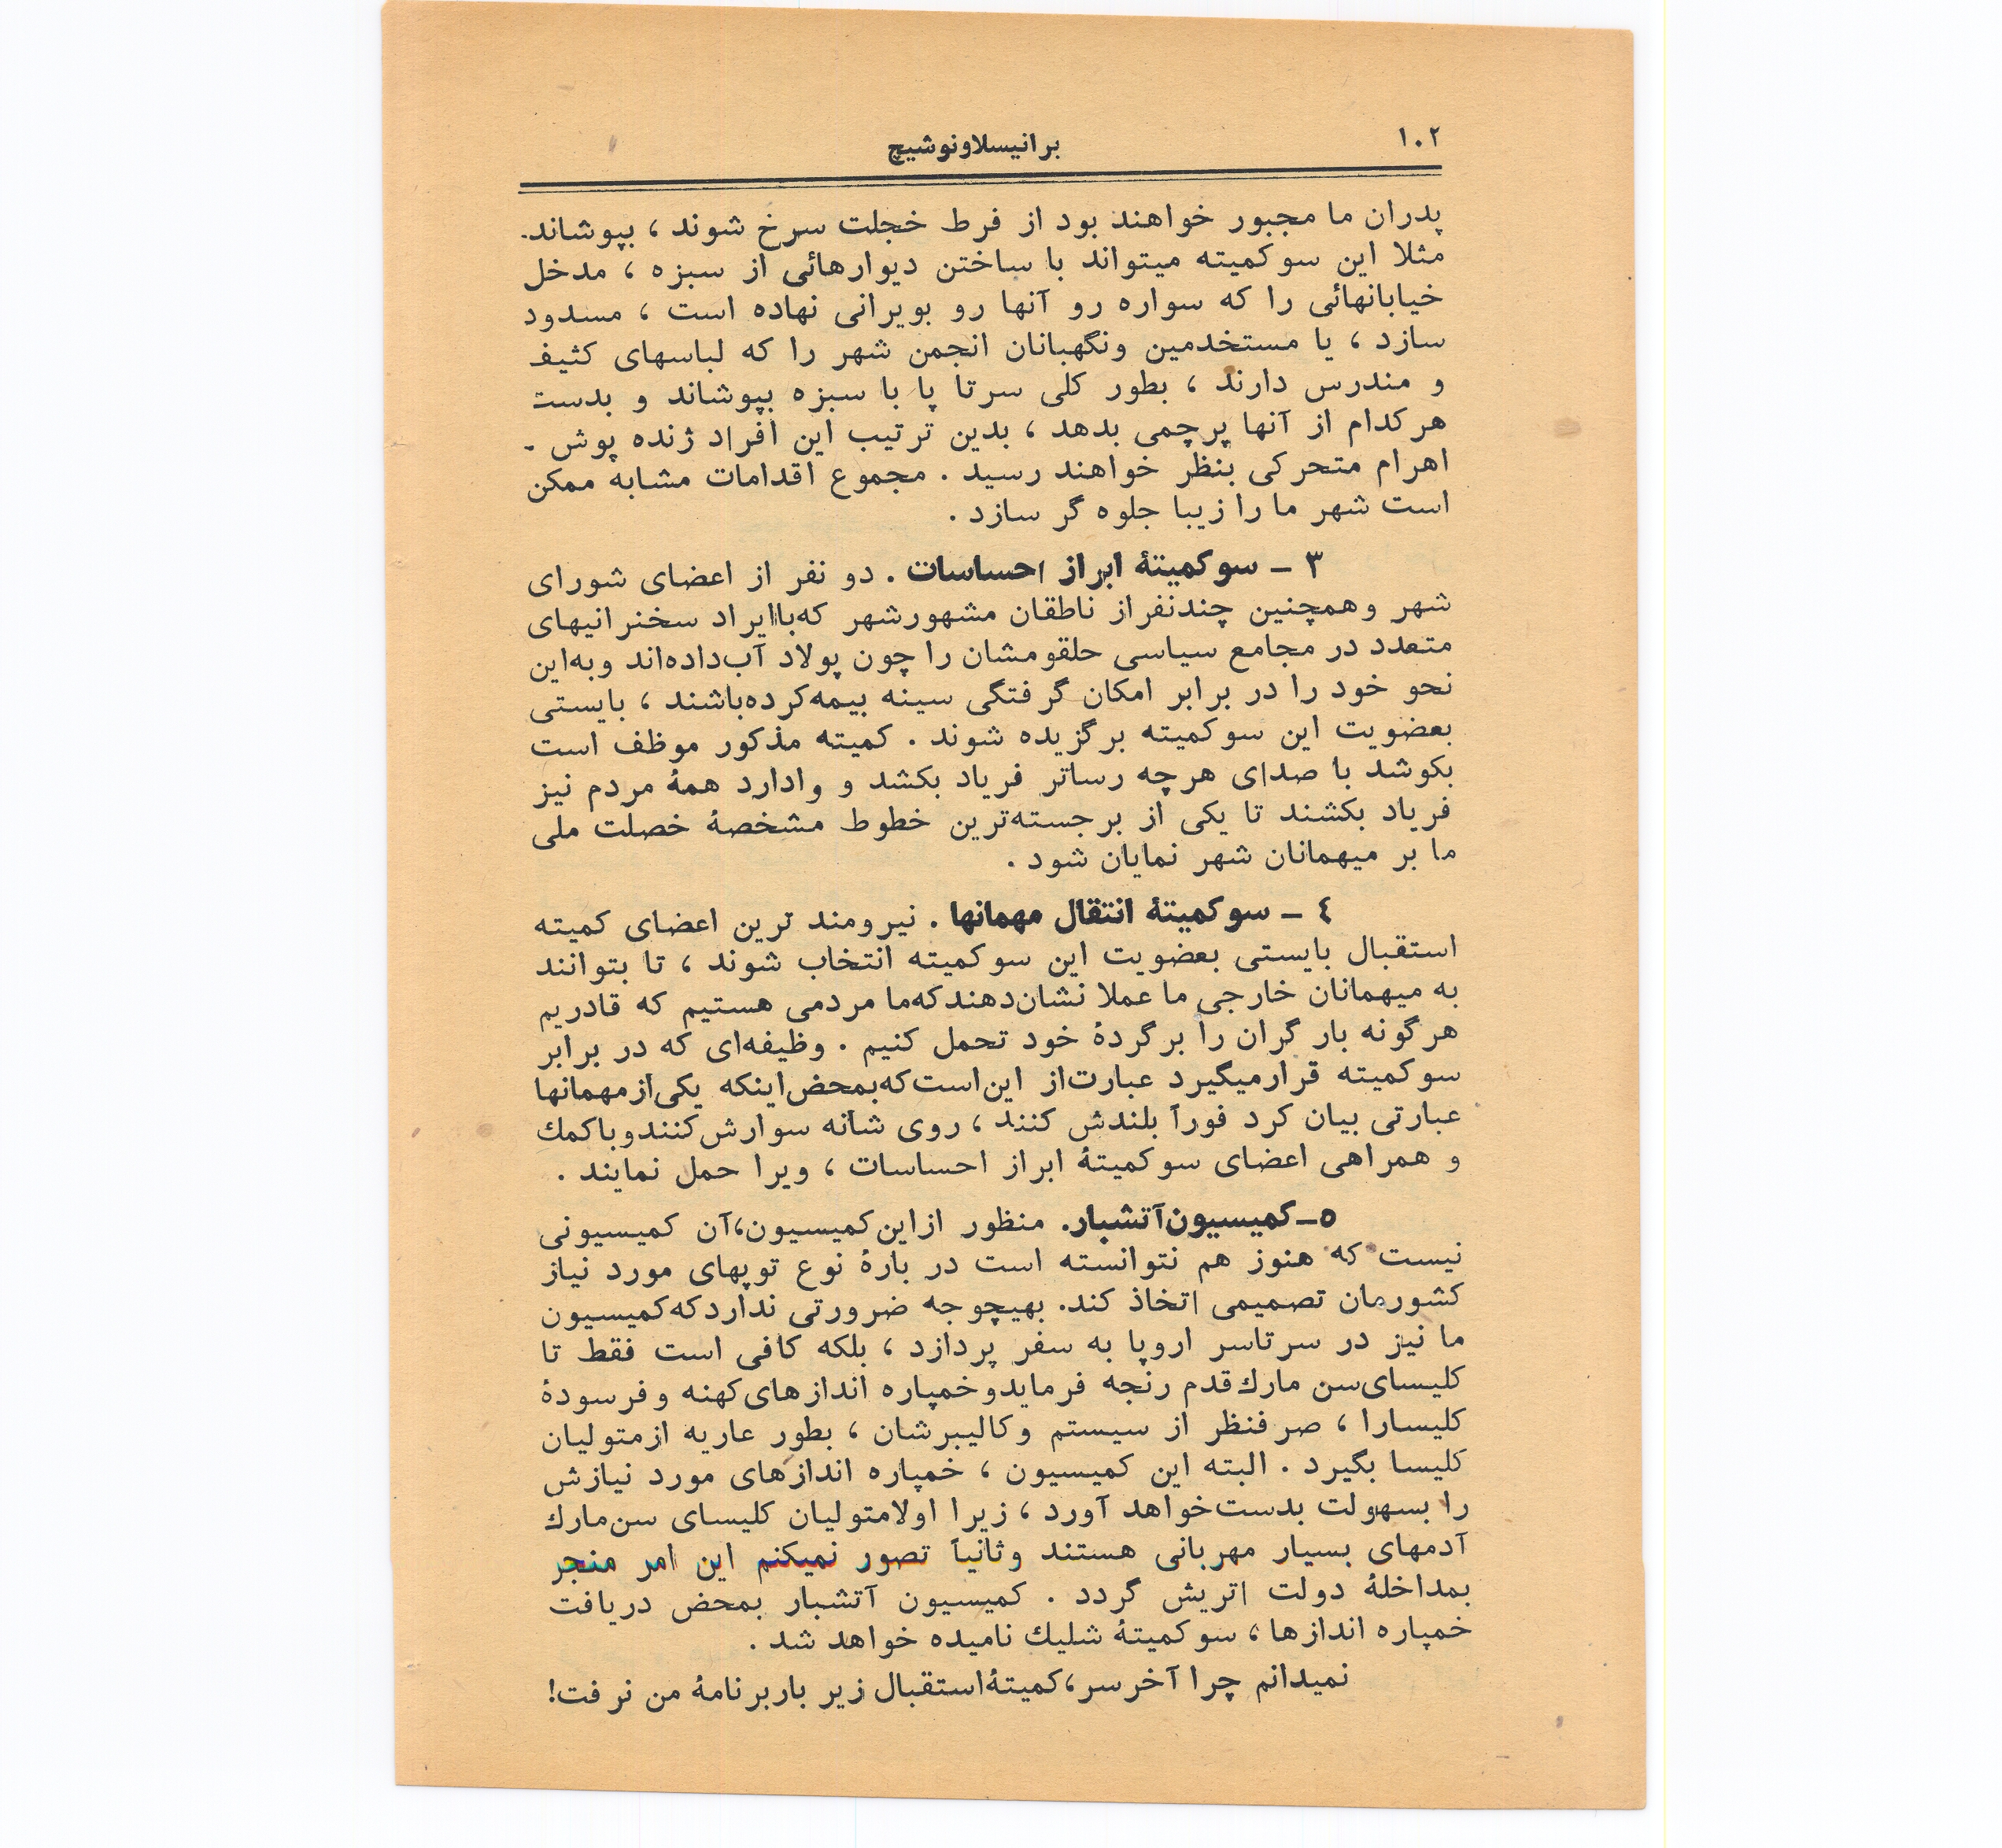 ۱۰۲
برانیسلاونوشیچ
پدران ما مجبور خواهند بود از فرط خجلت سرخ شوند ، بپوشاند.
مثلا این سوکمیته میتواند با ساختن دیوارهائی از سبزه ، مدخل
خیابانهائی را که سواره رو آنها رو بویرانی نهاده است ، مسدود
سازد ، یا مستخدمین ونگهبانان انجمن شهر را که لباسهای کثیف
و مندرس دارند ، بطور کلی سرتا پا با سبزه بپوشاند و بدست
هرکدام از آنها پرچمی بدهد ، بدین ترتیب این افراد ژنده پوش -
اهرام متحرکی بنظر خواهند رسید . مجموع اقدامات مشابه ممکن
است شهر ما را زیبا جلوه گر سازد .
۳ – سوکمیتهٔ ابراز احساسات . دو نفر از اعضای شورای
شهر وهمچنین چندنفراز ناطقان مشهورشهر که‌باایراد سخنرانیهای
متعدد در مجامع سیاسی حلقومشان را چون پولاد آب‌داده‌اند وبه‌این
نحو خود را در برابر امکان گرفتگی سینه بیمه‌کرده‌باشند ، بایستی
بعضویت این سوکمیته برگزیده شوند . کمیته مذکور موظف است
بکوشد با صدای هرچه رساتر فریاد بکشد و وادارد همهٔ مردم نیز
فریاد بکشند تا یکی از برجسته‌ترین خطوط مشخصهٔ خصلت ملی
ما بر میهمانان شهر نمایان شود .
٤ – سوکمیتهٔ انتقال مهمانها . نیرومند ترین اعضای کمیته
استقبال بایستی بعضویت این سوکمیته انتخاب شوند ، تا بتوانند
به میهمانان خارجی ما عملا نشان‌دهندکه‌ما مردمی هستیم که قادریم
هرگونه بار گران را برگردهٔ خود تحمل کنیم . وظیفه‌ای که در برابر
سوکمیته قرارمیگیرد عبارت‌از این‌است‌که‌بمحض‌اینکه یکی‌ازمهمانها
عبارتی بیان کرد فوراً بلندش کنند ، روی شانه سوارش‌کنندوباکمك
و همراهی اعضای سوکمیتهٔ ابراز احساسات ، ویرا حمل نمایند .
۵–کمیسیون‌آتشبار. منظور ازاین‌کمیسیون،آن کمیسیونی
نیست که هنوز هم نتوانسته است در بارهٔ نوع توپهای مورد نیاز
کشورمان تصمیمی اتخاذ کند. بهیچوجه ضرورتی نداردکه‌کمیسیون
ما نیز در سرتاسر اروپا به سفر پردازد ، بلکه کافی است فقط تا
کلیسای‌سن مارك‌قدم رنجه فرمایدوخمپاره اندازهای‌کهنه وفرسودهٔ
کلیسارا ، صرفنظر از سیستم وکالیبرشان ، بطور عاریه ازمتولیان
کلیسا بگیرد . البته این کمیسیون ، خمپاره اندازهای مورد نیازش
را بسهولت بدست‌خواهد آورد ، زیرا اولامتولیان کلیسای سن‌مارك
آدمهای بسیار مهربانی هستند وثانیاً تصور نمیکنم این امر منجر
بمداخلهٔ دولت اتریش گردد . کمیسیون آتشبار بمحض دریافت
خمپاره اندازها ، سوکمیتهٔ شلیك نامیده خواهد شد .
نمیدانم چرا آخرسر،کمیتهٔ‌استقبال زیر باربرنامهٔ من نرفت!